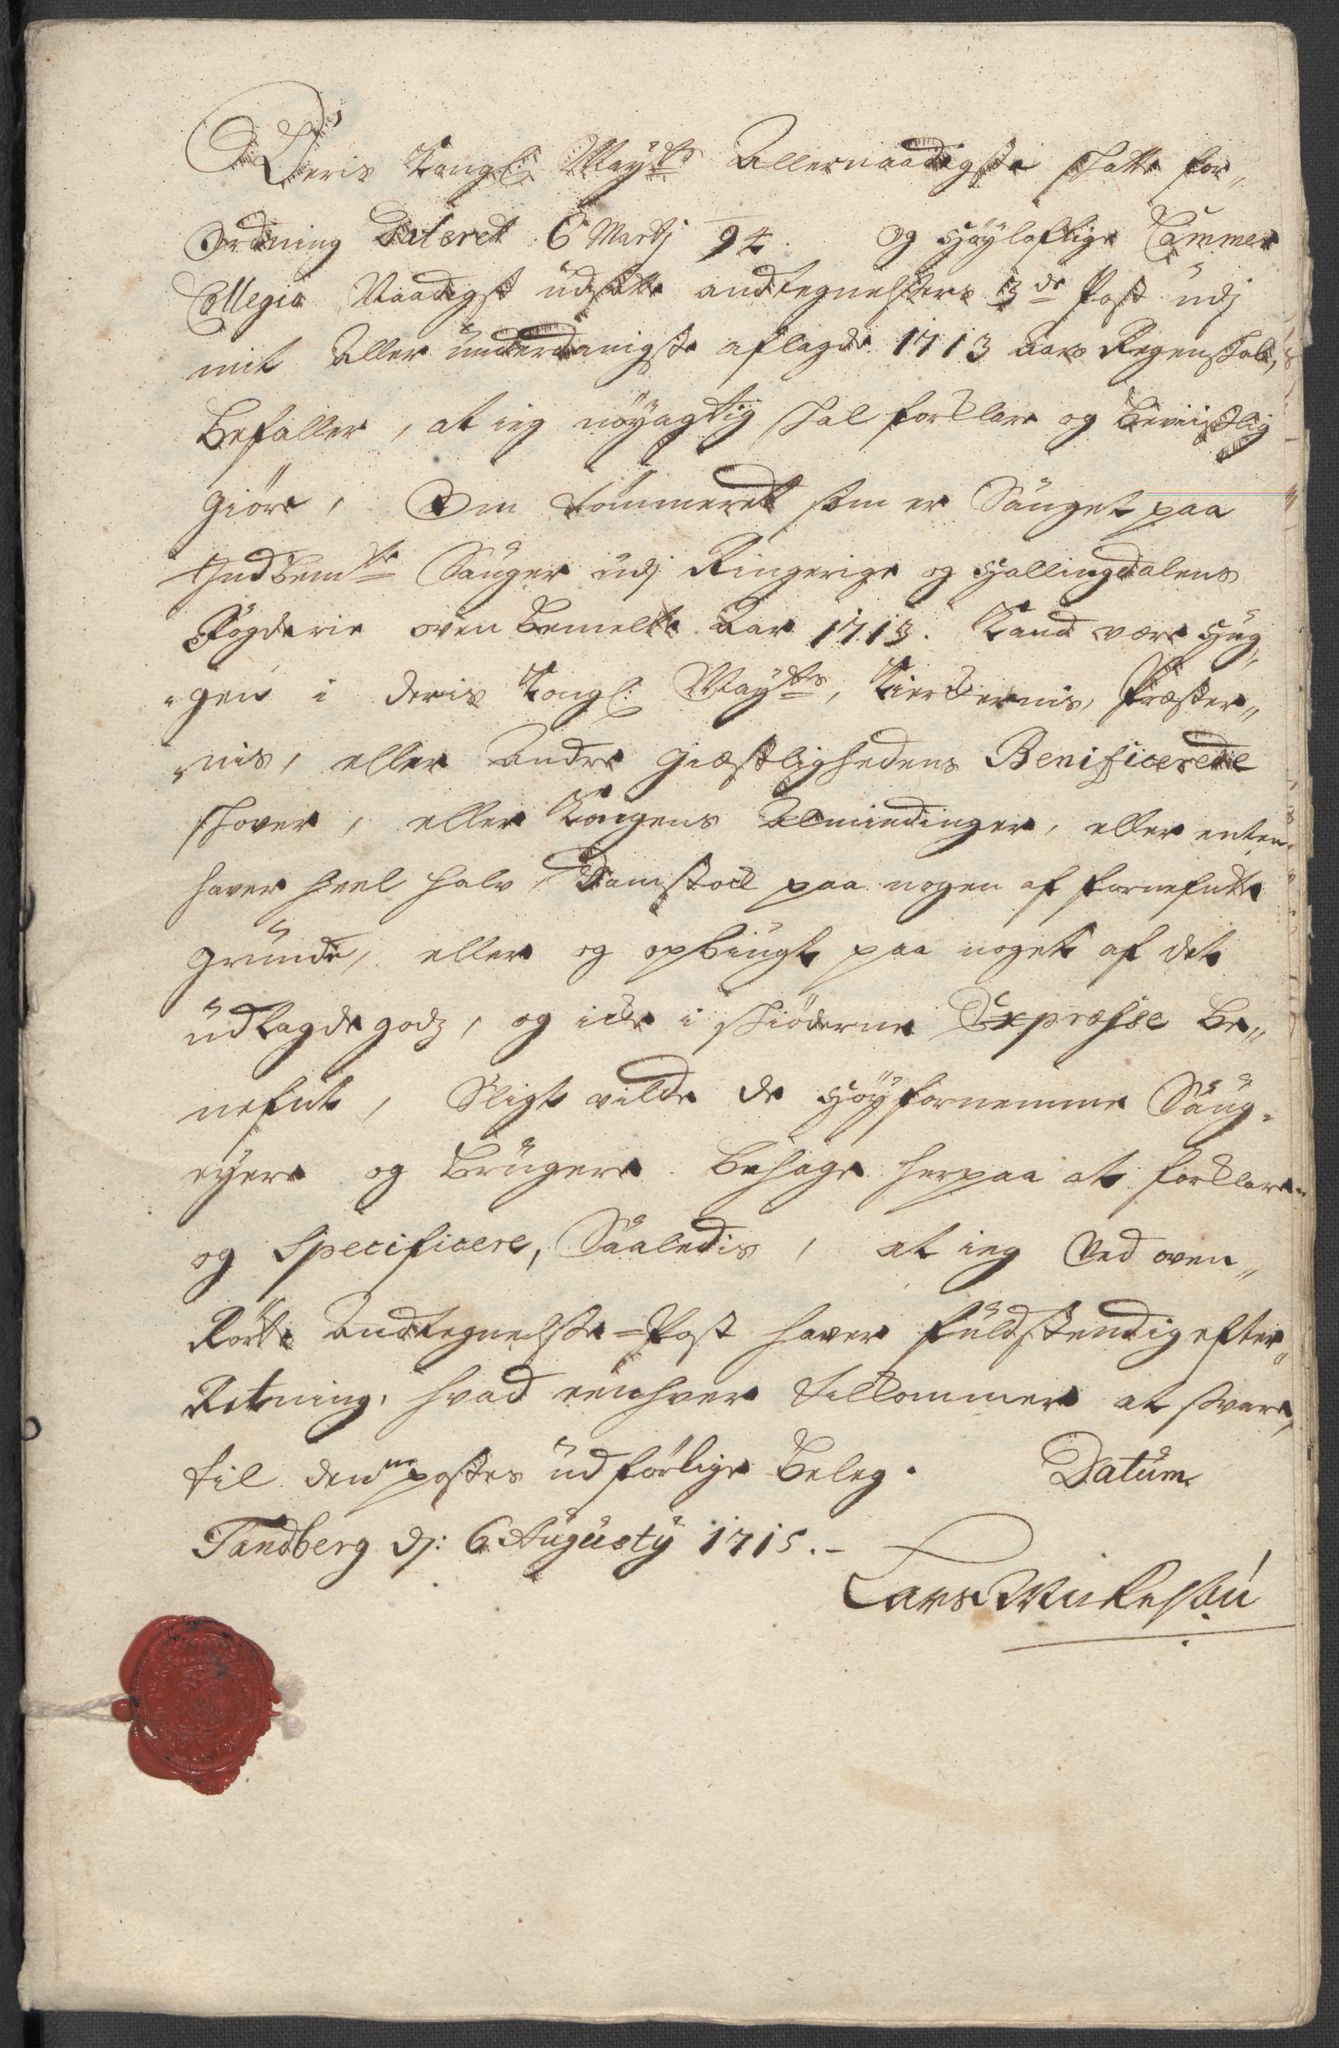 Deris Kongl: Maÿts Allernaadigste skatte for„
Ordning Dateret 6 Martj 94. og Høÿloflige Cammer
Collegia Naadigst udsatte andtegnelsers 3de Post udj
mit Aller underdanigste aflagde 1713 Aars Regenskab,
Befaller, at ieg nøÿagtig skal forklare og beviislig
giøre, Om tømmeret som er Sauget paa
Sauger udj Ringerige og Hallingdalens
Fogderie oven bemelte Aar 1713. Kand være Hug„
„gen i deris Kongl: Maÿts, Kierkernis, Præster„
„nis, eller Andre Giæstlighedens Benificerede
skover, eller Kongens Alminding​er, eller enten
haver heel halv Damstock paa nogen af fornefnte
grunde, eller og opbiugt paa noget af det
udlagde godz, og icke i skiøderne Expræsse be„
nefnt, Sligt vilde de Høÿfornemme Saug„
eyere og Brugere behage herpaa at forklare
og Specificere, Saaledis, at ieg Ved oven„
Rørte Andtegnelse-Post haver fuldstendig efter„
Retning, hvad eenhver tilkommer at svare,
til denne postes udførlige Beleg. Datum
Tandberg dj: 6 Augustÿ 1715.
Lars